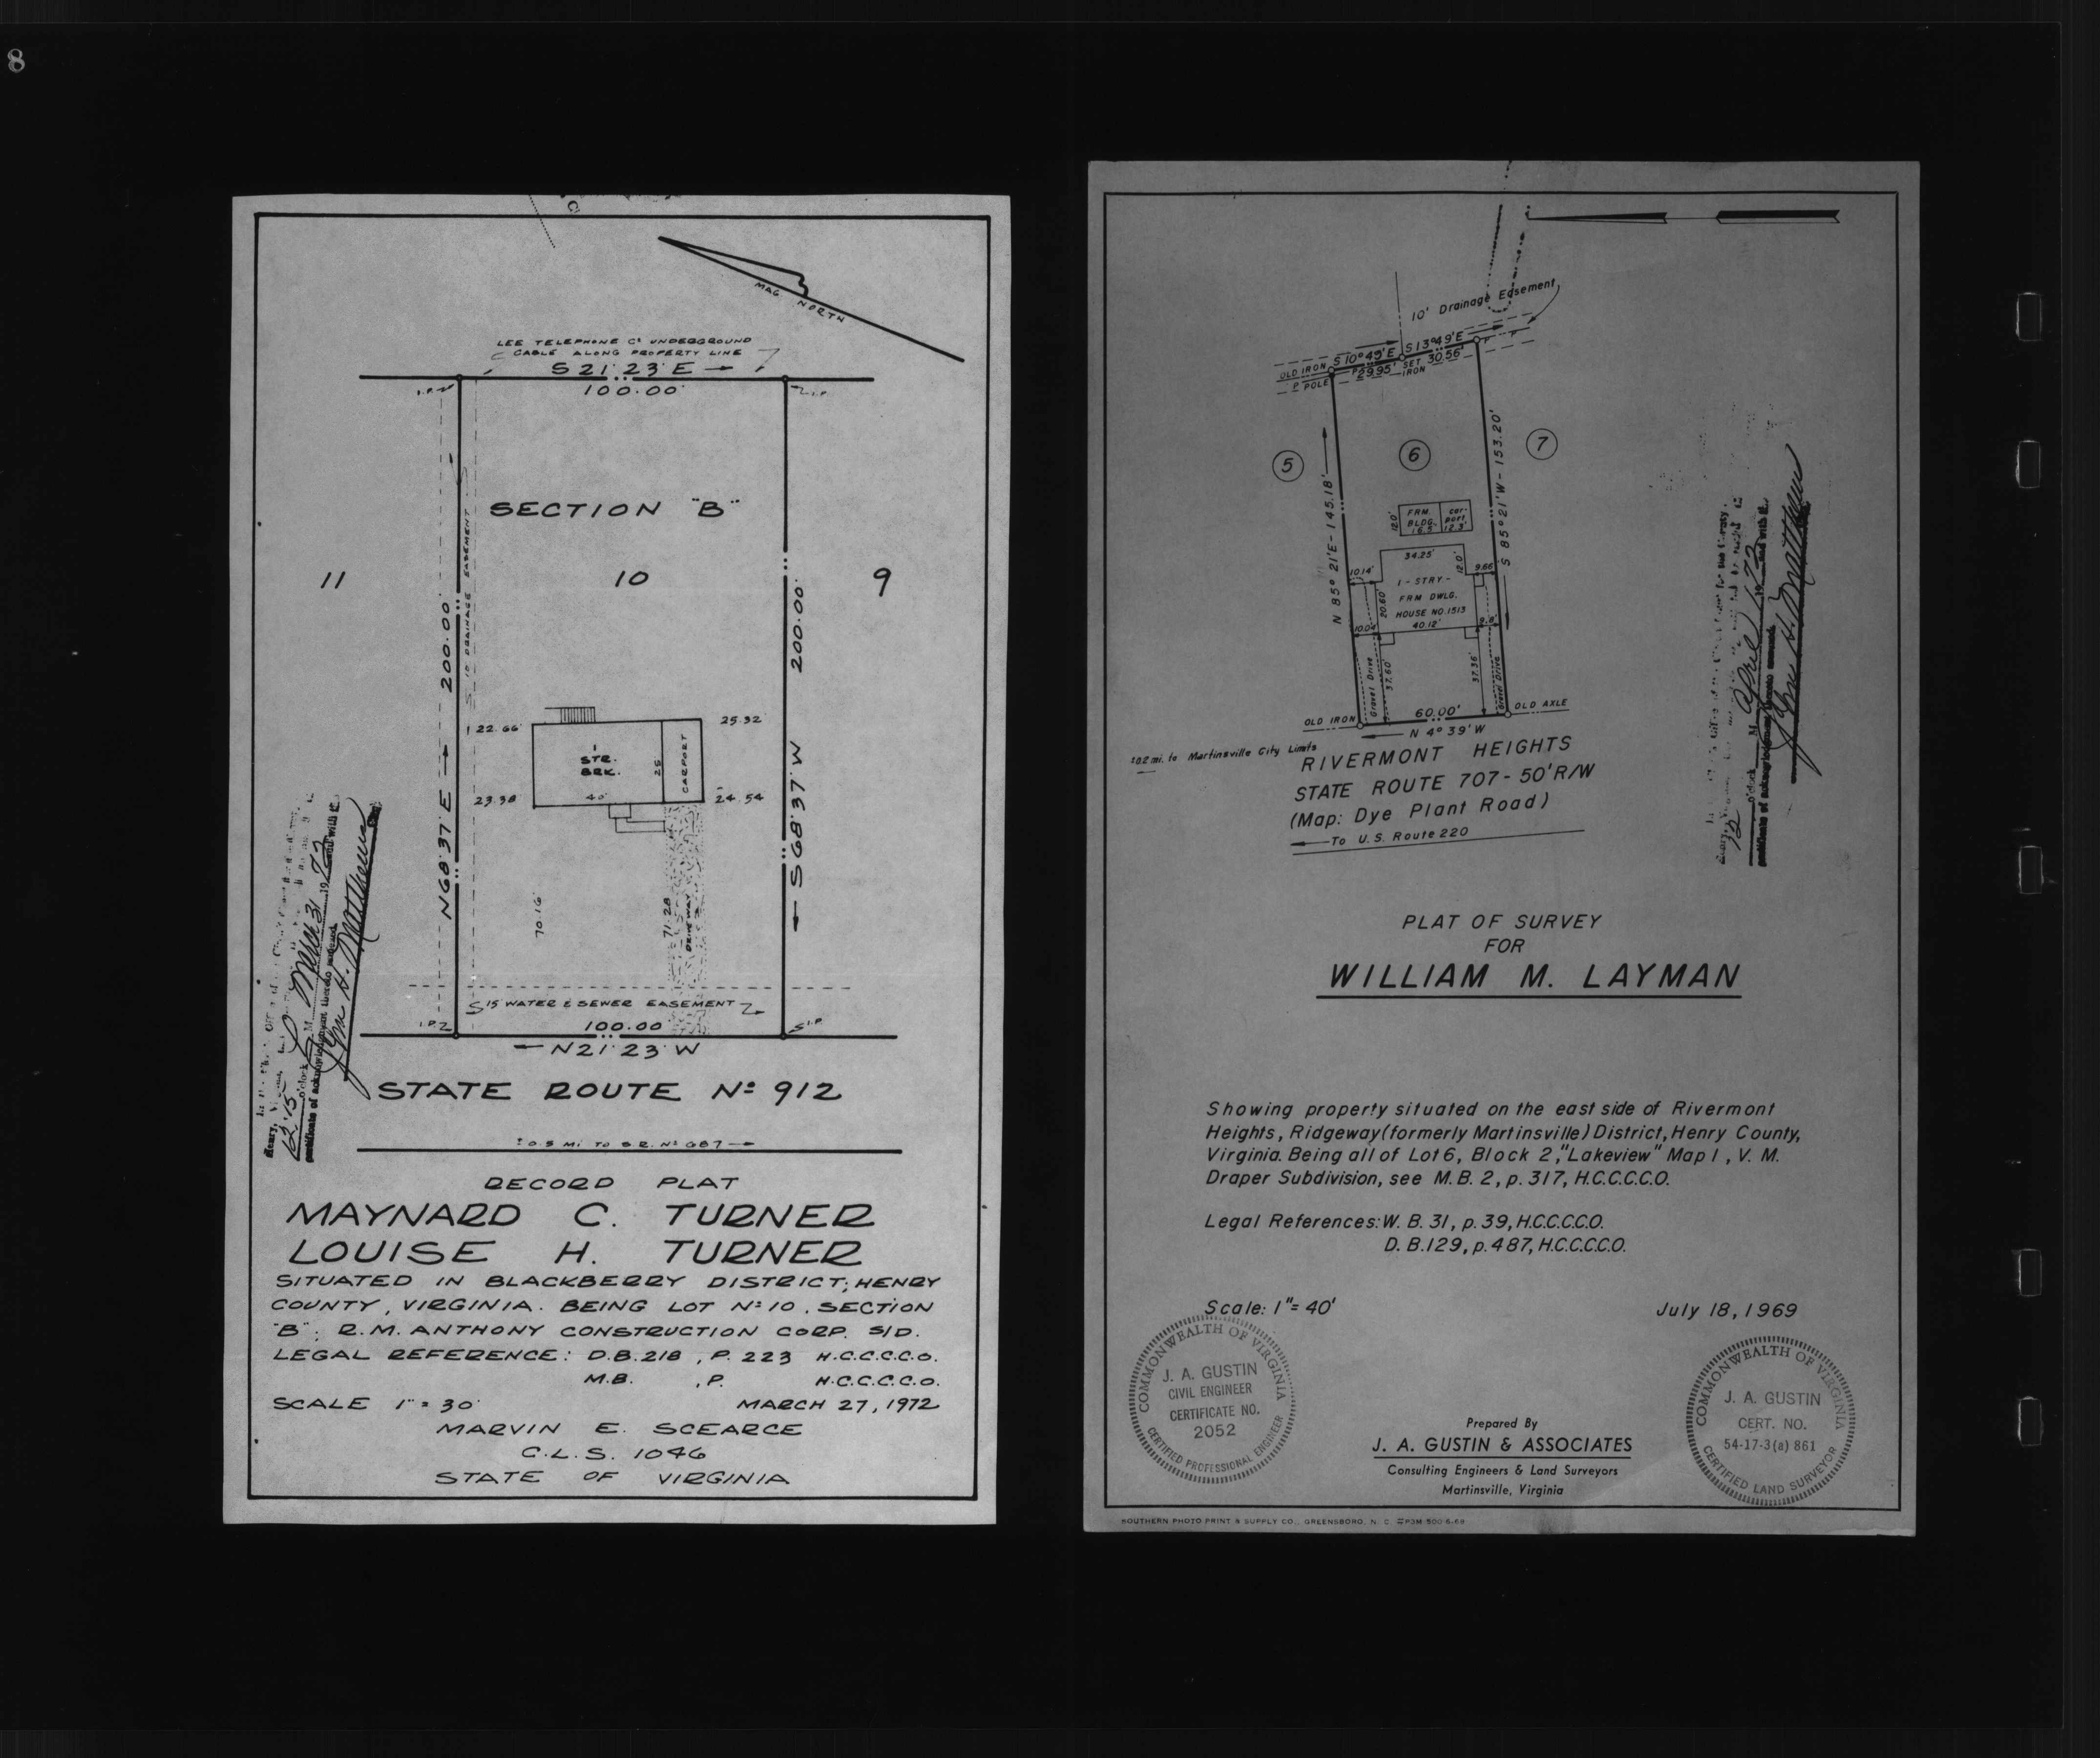 8
MAG NORTH
LEE TELEPHONE Cº UNDERGROUND
CABLE ALONG PROPERTY LINE
S 21° 23' E
100.00'
I.P.
I.P.
SECTION "B"
11
10
9
N 68° 37' E
200.00'
10' DRAINAGE EASEMENT
S 68° 37' W
200.00'
22.66'
25.32'
1
STR.
BRK.
25'
CARPORT
40'
23.38'
24.54'
70.16'
71.28
DRIVEWAY
15' WATER & SEWER EASEMENT
I.P.
100.00'
I.P.
N 21° 23' W
STATE ROUTE Nº 912
± 0.5 MI TO S.R. Nº 687
o'clock M. 31 1972 and with the
certificate of acknowledgment thereto annexed.
12:15
Jno. H. Matthews
RECORD PLAT
MAYNARD C. TURNER
LOUISE H. TURNER
SITUATED IN BLACKBERRY DISTRICT; HENRY
COUNTY, VIRGINIA. BEING LOT Nº 10, SECTION
"B"; R.M. ANTHONY CONSTRUCTION CORP. S/D.
LEGAL REFERENCE: D.B. 218, P. 223 H.C.C.C.C.O.
M.B. , P. H.C.C.C.C.O.
SCALE 1" = 30' MARCH 27, 1972
MARVIN E. SCEARCE
C.L.S. 1046
STATE OF VIRGINIA
10' Drainage Easement
S 10° 49' E
S 13° 49' E
OLD IRON
P. POLE
29.95'
SET IRON
30.56'
5
6
7
N 85° 21' E - 145.18'
S 85° 21' W - 153.20'
12.0'
FRM. BLDG. 16.5'
Car-port 12.3'
34.25'
12.0'
10.14'
9.66'
1 - STRY. -
FRM DWLG.
HOUSE NO. 1513
20.60'
40.12'
10.04'
9.8'
Gravel Drive
37.60'
37.36'
Gravel Drive
60.00'
OLD IRON
OLD AXLE
N 4° 39' W
±0.2 mi. to Martinsville City Limits
RIVERMONT HEIGHTS
STATE ROUTE 707 - 50' R/W
(Map: Dye Plant Road)
To U.S. Route 220
o'clock M. April 1973 and with the
certificate of acknowledgment thereto annexed.
Jno. H. Matthews
PLAT OF SURVEY
FOR
WILLIAM M. LAYMAN
Showing property situated on the east side of Rivermont
Heights, Ridgeway (formerly Martinsville) District, Henry County,
Virginia. Being all of Lot 6, Block 2, "Lakeview" Map 1, V. M.
Draper Subdivision, see M.B. 2, p. 317, H.C.C.C.C.O.
Legal References: W. B. 31, p. 39, H.C.C.C.C.O.
D. B. 129, p. 487, H.C.C.C.C.O.
Scale: 1" = 40' July 18, 1969
COMMONWEALTH OF VIRGINIA
J. A. GUSTIN
CIVIL ENGINEER
CERTIFICATE NO.
2052
CERTIFIED PROFESSIONAL ENGINEER
Prepared By
J. A. GUSTIN & ASSOCIATES
Consulting Engineers & Land Surveyors
Martinsville, Virginia
COMMONWEALTH OF VIRGINIA
J. A. GUSTIN
CERT. NO.
54-17-3(a) 861
CERTIFIED LAND SURVEYOR
SOUTHERN PHOTO PRINT & SUPPLY CO., GREENSBORO, N. C.